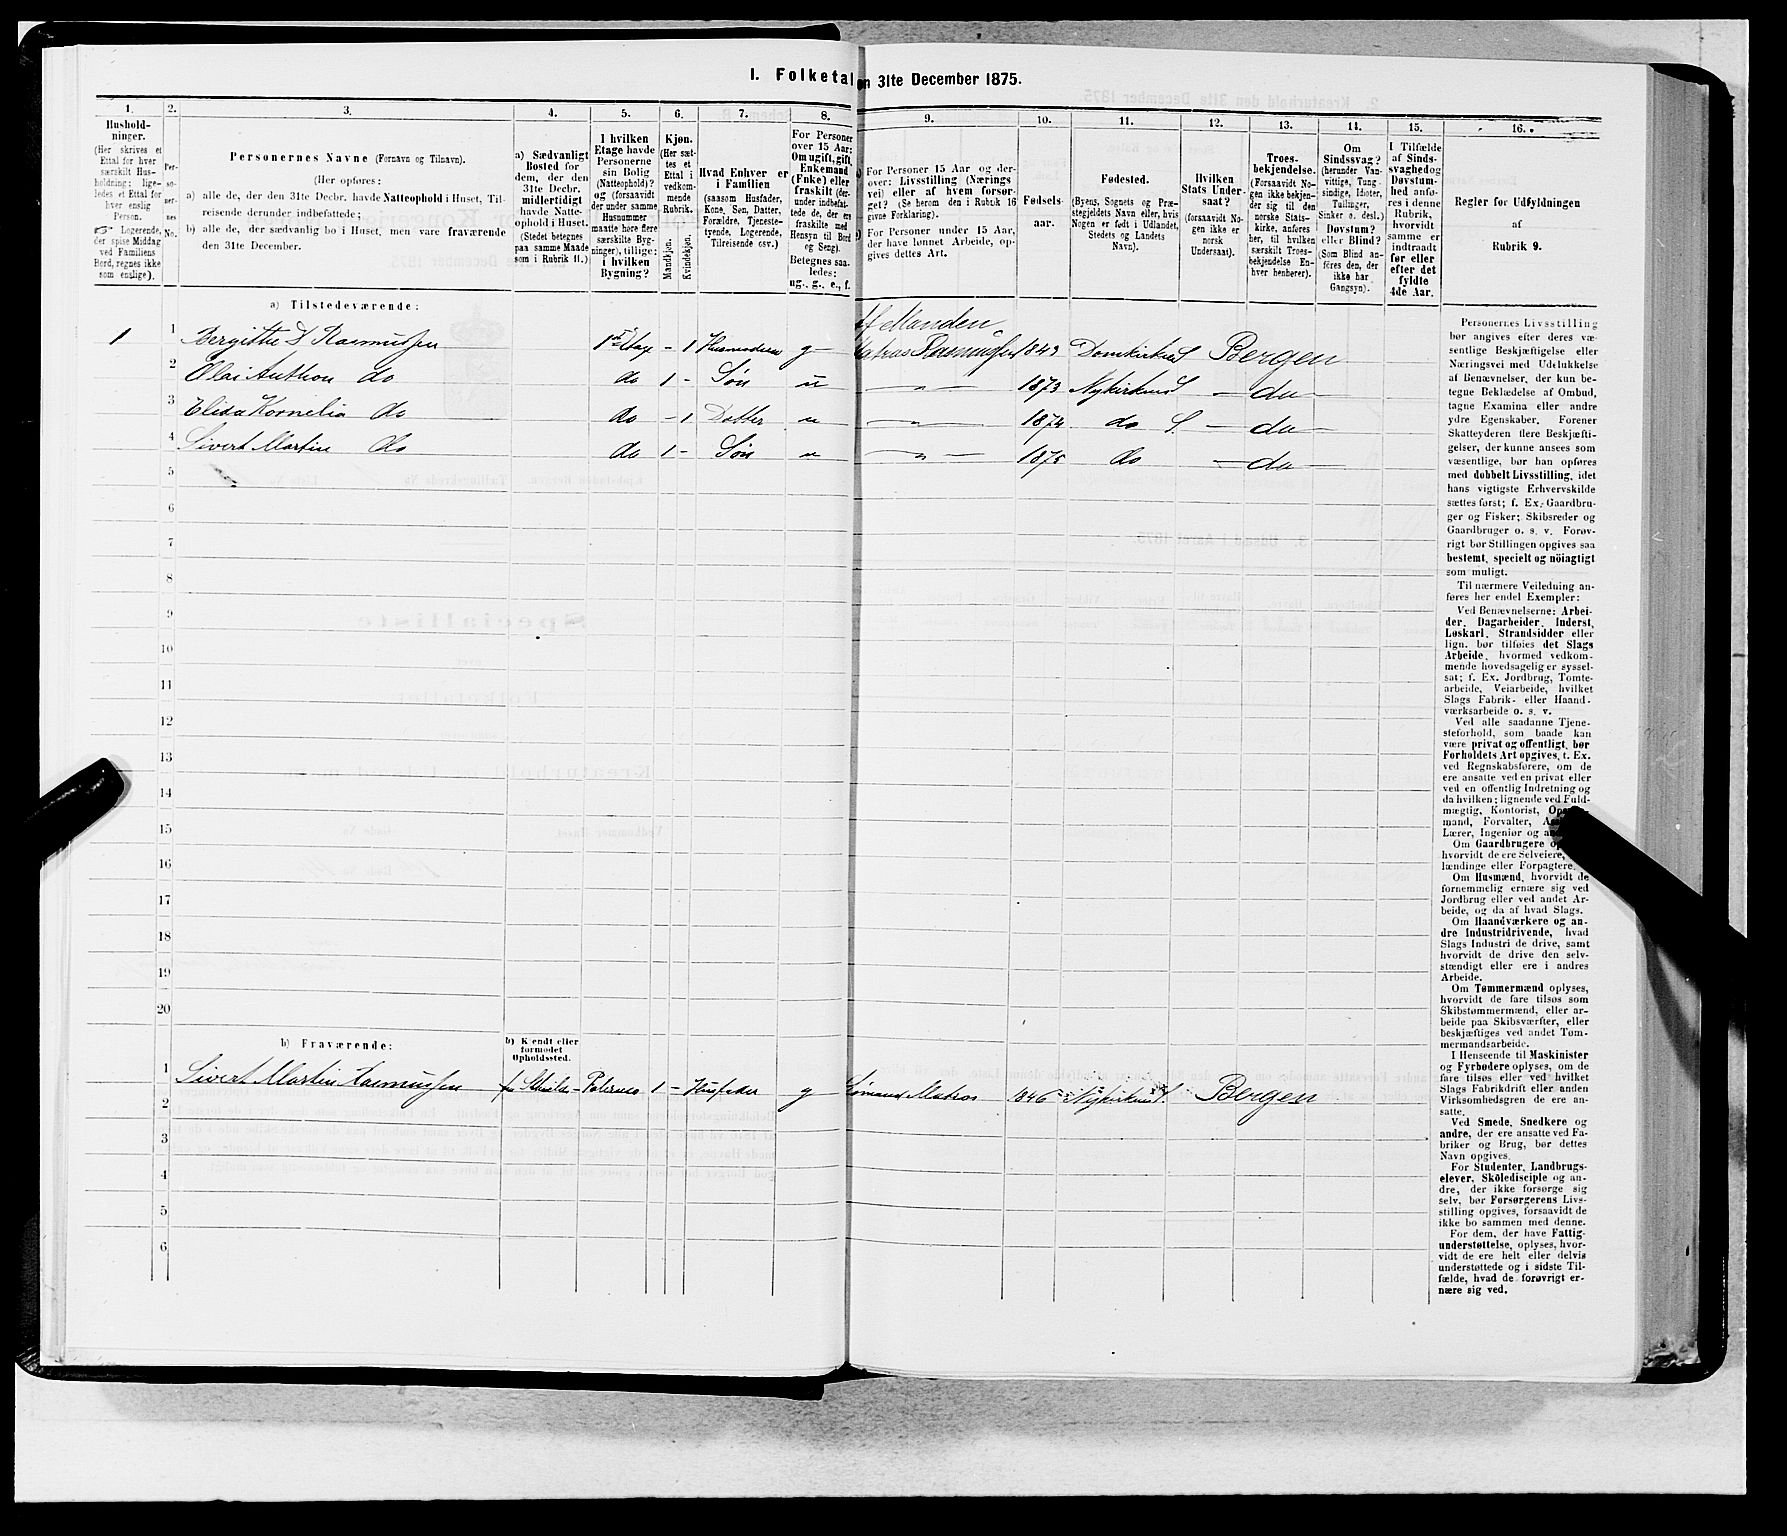 I. Folketal den 31te December 1875.
1. 2. 3. 4. 5. 6. 7. 8. 9. 10. 11. 12. 13. 14. 15. 16.
Hushold-
ninger.
(Her skrives et
Ettal for hver
særskilt Hus-
holdning; lige-
ledes et Ettal for
hver enslig
Person.
Logerende,
der spise Middag
ved Familiens
Bord, regnes ikke
som enslige).
Per-
so-
ner-
nes
No.
Personernes Navne (Fornavn og Tilnavn).
(Her opføres:
a) alle de, der den 31te Decbr. havde Natteophold i Huset, Til-
reisende derunder indbefattede;
b) alle de, der sædvanlig bo i Huset, men vare fraværende
den 31te December.
a) Sædvanligt
Bosted for
dem, der den
31te Decbr.
midlertidigt
havde Natte-
ophold i Huset.
(Stedet betegnes
paa samme Maade
som i Rubrik 11.)
I hvilken
Etage havde
Personerne
sin Bolig
(Natteophold)?
og (forsaavidt
der under samme
Husnummer
maatte høre flere
særskilte Byg-
ninger), tillige:
i hvilken
Bygning?
Kjøn.
(Her sæt-
tes et
Ettal i
vedkom-
mende
Rubrik.
Mandkjøn.
Kvindekjøn.
Hvad Enhver er
i Familien
(saasom Husfader,
Kone, Søn, Datter,
Forældre, Tjeneste-
tyende, Logerende,
Tilreisende osv.)
For Personer
over 15 Aar:
Om ugift, gift,
Enkemand
(Enke) eller
fraskilt (der-
under indbefat-
tede de, der ere
fraskilte med
Hensyn til Bord
og Seng).
Betegnes saa-
ledes:
ug., g., e., f.
For Personer 15 Aar og der-
over: Livsstilling (Nærings
vei) eller af hvem forsør-
get? (Se herom den i Rubuk 16
givne Forklaring).
For Personer under 15 Aar,
der have lønnet Arbeide, op-
gives dettes Art.
Fødsels-
aar.
Fødested.
(Byens, Sognets og Præ-
stegjeldets Navn eller, hvis
Nogen er født i Udlandet,
Stedets og Landets
Navn).
Hvilken
Stats Under-
saat?
(forsaavidt No-
gen ikke er
norsk
Undersaat).
Troes-
bekjendelse.
(Forsaavidt No-
gen ikke bekjen-
der sig til den
norske Stats-
kirke, anføres
her, til hvilken
særskilt Troes-
bekjendelse En-
hver henhører).
Om
Sindssvag?
(herunder Van-
vittige, Tung-
sindige, Idioter,
Tullinger,
Sinker o. desl.)
Døvstum?
eller Blind?
(Som Blind an-
føres den, der
ikke har
Gangsyn).
I Tilfælde
af Sinds-
svaghed og
Døvstum-
hed anfø-
res i denne
Rubrik,
hvorvidt
samme er
indtraadt
før eller
efter det
fyldte
4de Aar.
Regler for Udfyldningen
af
Rubrik 9.
a) Tilstedeværende:
1 1 Bergitte Rasmussen 1st Etag - 1 Husmoder g Af Manden Matros Rasmussen 1849 Domkirkens S Bergen
2 Olai Anthon do do 1 - Søn u - " - 1873 Nykirkens S - do -
3 Elida Kornelia do do - 1 Datter u - " - 1874 do S. - do -
4 Sivert Martin do do 1 - Søn u - " - 1875 do - do -
5
6
7
8
9
10
11
12
13
14
15
16
17
18
19
20
b) Fraværende:
b) Kjendt eller
formodet
Opholdssted.
1 Sivert Martin Rasmussen 1 - Husfader g Sømand Matros 1846 Nykirkens S. Bergen
2
3
4
5
6
Personernes Livsstilling
bør angives efter deres væ-
sentlige Beskjæftigelse eller
Næringsvei med Udelukkelse
af Benævnelser, der kun be-
tegne Beklædelse af Ombud,
tagne Examina eller andre
ydre Egenskaber. Forener
Skatteyderen flere Beskjæfti-
gelser, der kunne ansees som
væsentlige, bør han opføres
med dobbelt Livsstilling, idet
hans vigtigste Erhvervskilde
sættes først; f. Ex. Gaardbru-
ger og Fisker; Skibsreder og
Gaardbruger o. s. v. Forøv-
rigt bør Stillingen opgives saa
bestemt, specielt og nöiagtigt
som muligt.
Til nærmere Veiledning an-
føres her endel Exempler:
Ved Benævnelserne: Arbei-
der, Dagarbeider, Inderst,
Løskarl, Strandsidder eller
lign. bør tilføies det Slags
Arbeide, hvormed vedkom-
mende hovedsagelig er syssel-
sat; f. Ex. Jordbrug, Tomte-
arbeide, Veiarbeide, hvilket
Slags Fabrik- eller Haand-
værksarbeide o. s. v.
Ved alle saadanne Tjene-
steforhold, som baade kan
være privat og offentligt, bør
Forholdets Art opgives, t. Ex.
ved Regnskabsførere, om de
ere ansatte ved en privat eller
ved en offentlig Indretning og
da hvilken; lignende ved Fuld-
mægtig, Kontorist,
mand, Forvalter,
Lærer, Ingeniør og
Om Gaardbrugere
hvorvidt de ere Selveiere,
lændinge eller Forpagtere.
Om Husmænd, hvorvidt de
fornemmelig ernære sig ved
Jordbrug eller ved andet Ar-
beide, og da af hvad Slags.
Om Haandværkere og an-
dre Industridrivende, hvad
Slags Industri de drive, samt
hvorvidt de drive den selv-
stændigt eller ere i andres
Arbeide.
Om Tømmermænd oplyses,
hvorvidt de fare tilsøs som
Skibstømmermænd, eller ar-
beide paa Skibsværfter, eller
beskjæftiges ved andet Tøm-
mermandsarbeide.
I Henseende til Maskinister
og Fyrbødere oplyses, om de
fare tilsøs eller ved hvilket
Slags Fabrikdrift eller anden
Virksomhedsgren de ere an-
satte.
Ved Smede, Snedkere og
andre, der ere ansatte ved Fa-
briker og Brug, bør dettes
Navn opgives.
For Studenter, Landbrugs-
elever, Skôledisciple og an-
dre, der ikke forsørge sig
selv, bør Forsørgerens Livs-
stilling opgives, forsaavidt de
ikke bo sammen med denne.
For dem, der have Fattig-
understøttelse, oplyses, hvor-
vidt de ere helt eller delvis
understøttede og i sidste Til-
fælde, hvad de forøvrigt er-
nære sig ved.